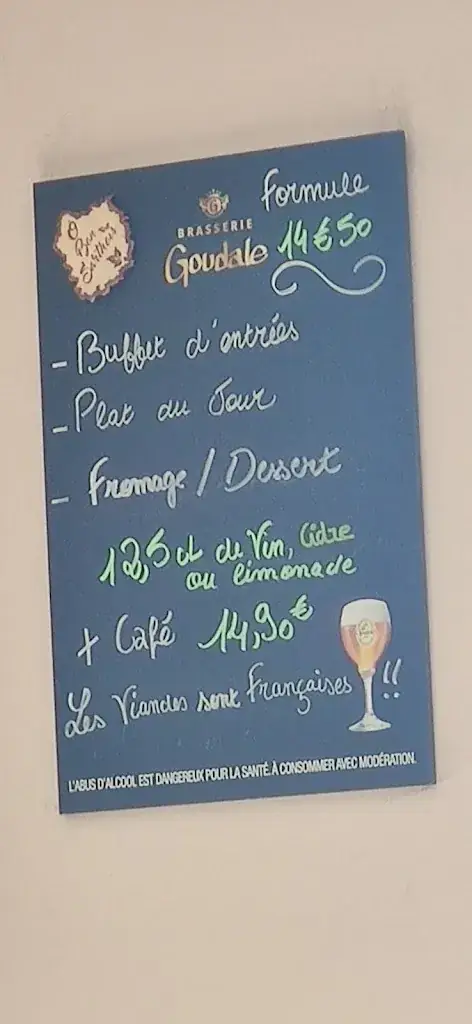 Ô Bon Sarthois
Formule
BRASSERIE
Goudale 14€50
- Buffet d'entrées
- Plat du Jour
- Fromage / Dessert
12,5 cl de Vin, Cidre
ou limonade
+ Café 14,90€
Les Viandes sont Françaises !!
L'ABUS D'ALCOOL EST DANGEREUX POUR LA SANTÉ. À CONSOMMER AVEC MODÉRATION.